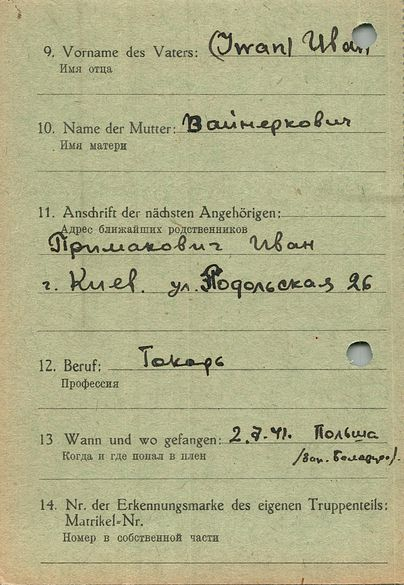 9. Vorname des Vaters: (Iwan) Иван
Имя отца
10. Name der Mutter: Вайнеркович
Имя матери
11. Anschrift der nächsten Angehörigen:
Адрес ближайших родственников
Примакович Иван
г. Киев. ул. Подольская 26
12. Beruf: Токарь
Профессия
13 Wann und wo gefangen: 2.7.41. Польша
Когда и где попал в плен
/Зап.
14. Nr. der Erkennungsmarke des eigenen Truppenteils:
Matrikel-Nr.
Номер в собственной части